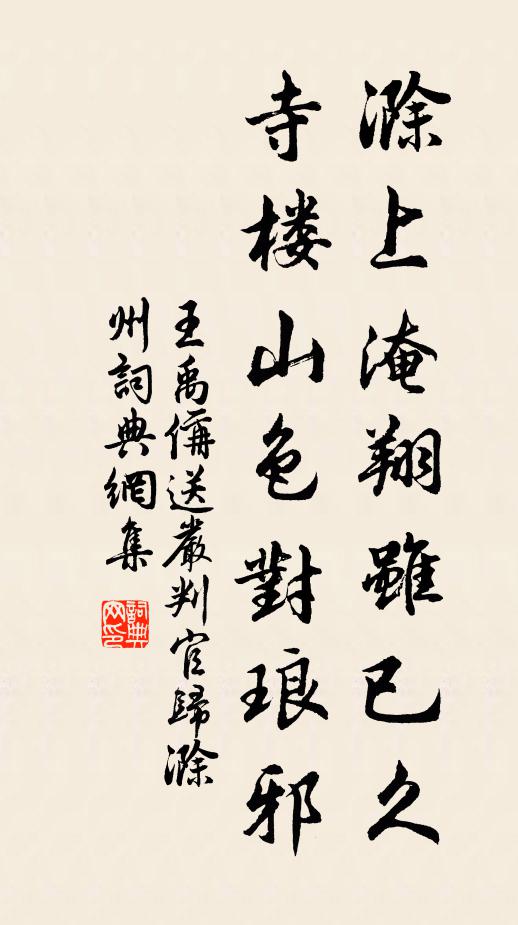 滁上淹翔雖已久
寺楼山色對琅邪
王禹偁送嚴判官歸滁
州詞典網集
詞典
网印